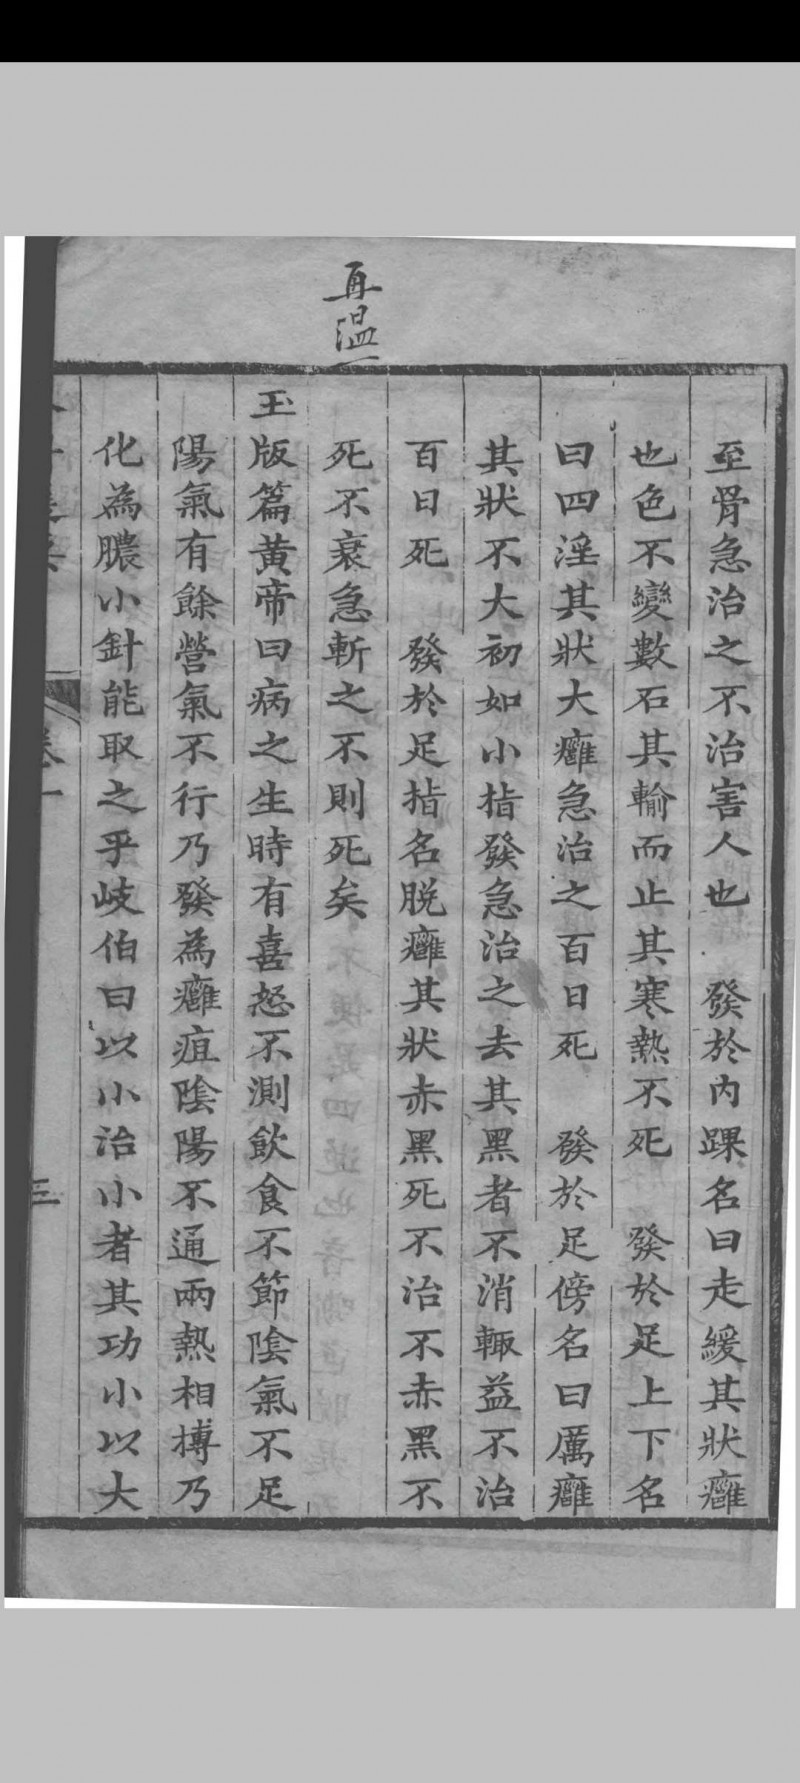 再温
至骨急治之不治害人也　發於内踝名曰走緩其狀癰
也色不變數石其輸而止其寒熱不死　發於足上下名
曰四淫其狀大癰急治之百日死　發於足傍名曰厲癰
其狀不大初如小指發急治之去其黑者不消輙益不治
百日死　發於足指名脱癰其狀赤黑死不治不赤黑不
死不衰急斬之不則死矣
玉版篇黄帝曰病之生時有喜怒不測飲食不節隂氣不足
陽氣有餘營氣不行乃發為癰疽隂陽不通兩熱相搏乃
化為膿小針能取之乎岐伯曰以小治小者其功小以大
卷一
三